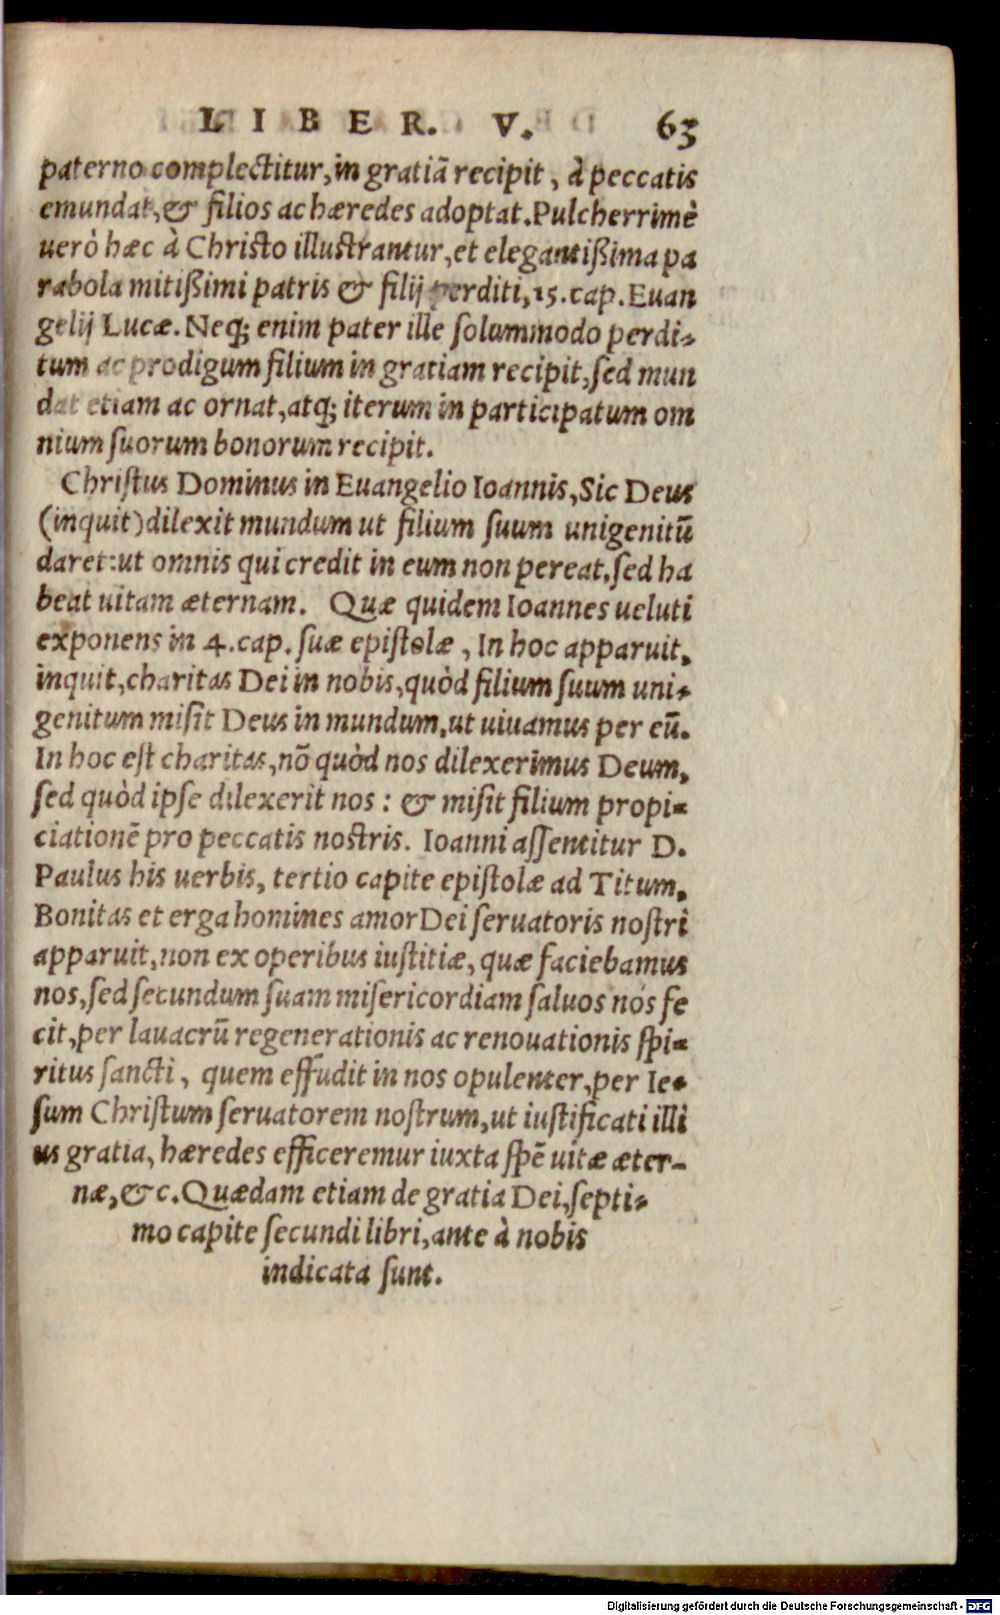 LIBER. V. 63
paterno complectitur, in gratiā recipit, à peccatis
emundat, & filios ac hæredes adoptat. Pulcherrimè
uerò hæc à Christo illustrantur, et elegantißima pa
rabola mitißimi patris & filij perditi, 15. cap. Euan
gelij Lucæ. Neq; enim pater ille solummodo perdi-
tum ac prodigum filium in gratiam recipit, sed mun
dat etiam ac ornat, atq; iterum in participatum om
nium suorum bonorum recipit.
Christus Dominus in Euangelio Ioannis, Sic Deus
(inquit) dilexit mundum ut filium suum unigenitū
daret: ut omnis qui credit in eum non pereat, sed ha
beat uitam æternam. Quæ quidem Ioannes ueluti
exponens in 4. cap. suæ epistolæ, In hoc apparuit,
inquit, charitas Dei in nobis, quòd filium suum uni-
genitum misit Deus in mundum, ut uiuamus per eū.
In hoc est charitas, nō quòd nos dilexerimus Deum,
sed quòd ipse dilexerit nos: & misit filium propi-
ciationē pro peccatis nostris. Ioanni assentitur D.
Paulus his uerbis, tertio capite epistolæ ad Titum,
Bonitas et erga homines amor Dei seruatoris nostri
apparuit, non ex operibus iustitiæ, quæ faciebamus
nos, sed secundum suam misericordiam saluos nos fe
cit, per lauacrū regenerationis ac renouationis spi-
ritus sancti, quem effudit in nos opulenter, per Ie-
sum Christum seruatorem nostrum, ut iustificati illi
us gratia, hæredes efficeremur iuxta spē uitæ æter-
næ, &c. Quædam etiam de gratia Dei, septi-
mo capite secundi libri, ante à nobis
indicata sunt.
Digitalisierung gefördert durch die Deutsche Forschungsgemeinschaft - DFG